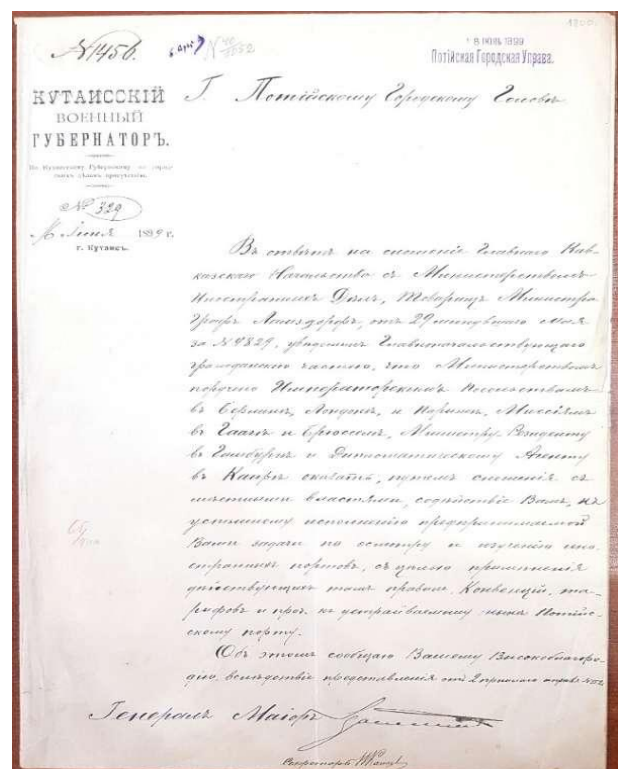 №1456.
8 ІЮНЬ 1899
Потійская Городская Управа.
КУТАИССКІЙ
ВОЕННЫЙ
ГУБЕРНАТОРЪ.
По Кутаисскому Губернскому по городскимъ дѣламъ присутствію.
№ 329
Іюня 1899 г.
г. Кутаисъ.
Г. Потійскому Городскому Головѣ
Въ отвѣтъ на сношеніе Главнаго Кав-
казскаго Начальства съ Министерствомъ
Иностранныхъ Дѣлъ, Товарищъ Министра
Графъ Ламздорфъ, отъ 29 минувшаго Мая
за №4829, увѣдомилъ Главноначальствующаго
гражданскою частію, что Министерствомъ
поручено Императорскимъ Посольствамъ
въ Берлинѣ, Лондонѣ, и Парижѣ, Миссіямъ
въ Гаагѣ и Брюсселѣ, Министру-Резиденту
въ Гамбургѣ и Дипломатическому Агенту
въ Каирѣ оказать, путемъ сношенія съ
мѣстными властями, содѣйствіе Вамъ, къ
успѣшному исполненію предпринимаемой
Вами задачи по осмотру и изученію ино-
странныхъ портовъ, съ цѣлью примѣненія
дѣйствующихъ тамъ правилъ, Конвенцій, та-
рифовъ и проч. къ устраиваемому нынѣ Потій-
скому порту.
Объ этомъ сообщаю Вашему Высокоблагоро-
дію, вслѣдствіе представленія отъ 2 апрѣля
Генералъ Маіоръ
Секретарь